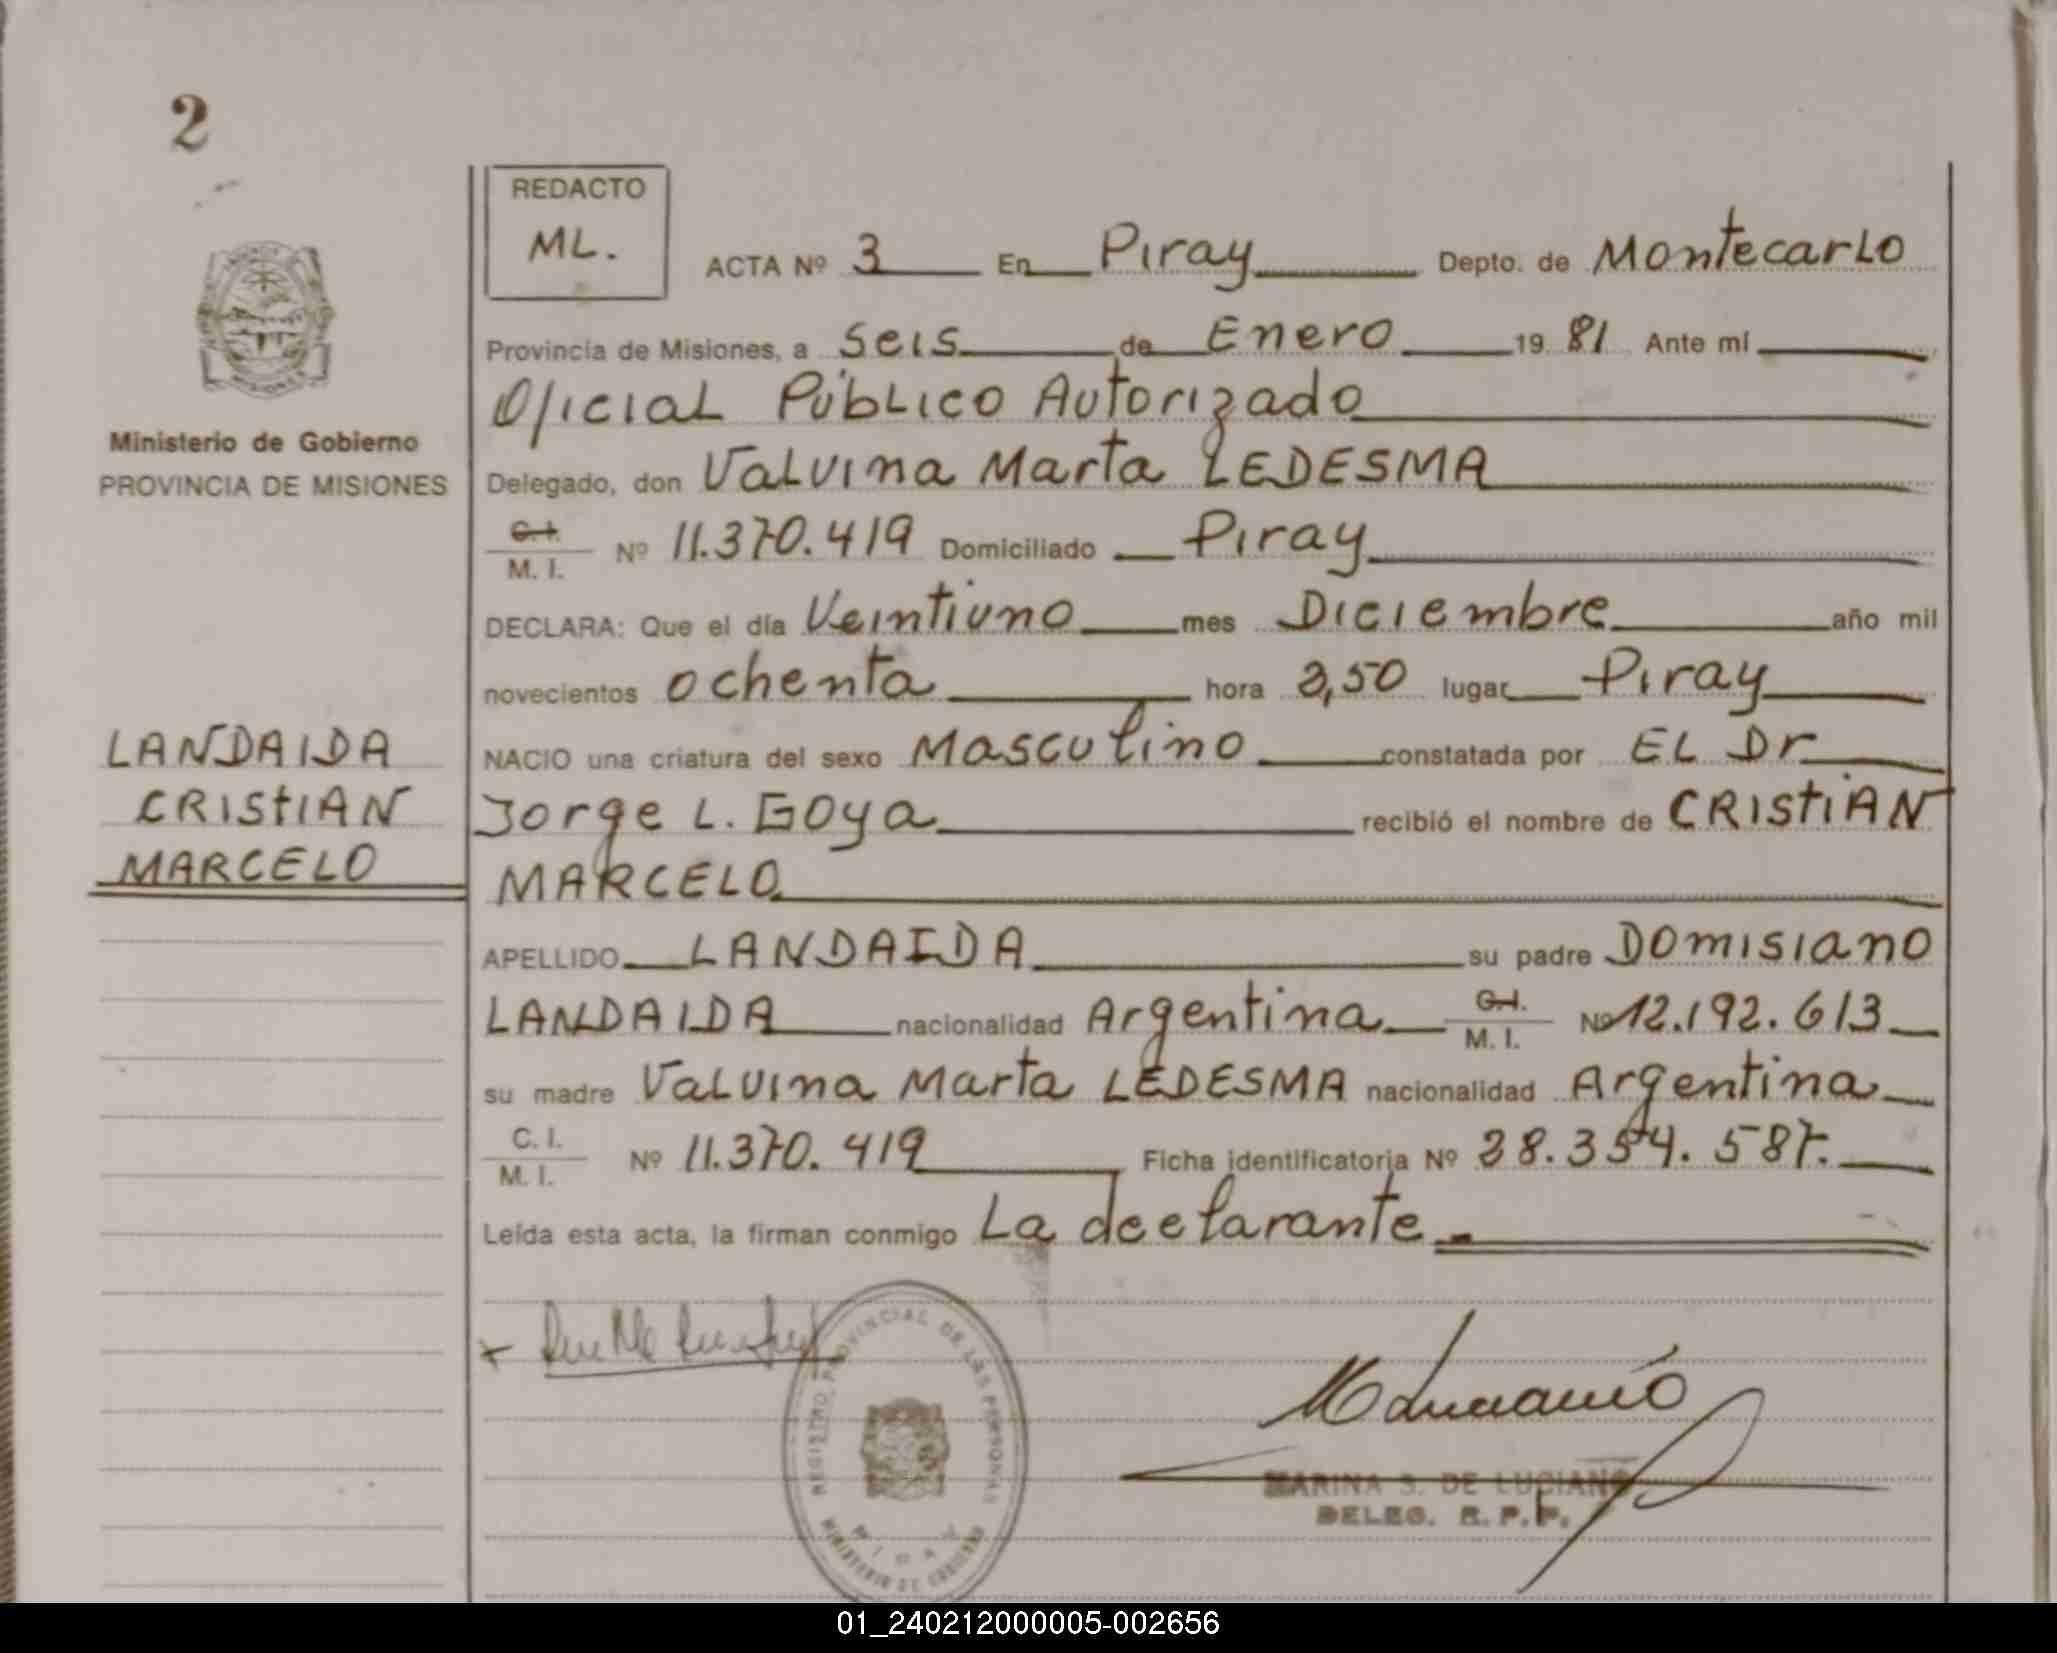 2
REDACTO
ML.
ACTA Nº 3 En Piray Depto. de Montecarlo
Provincia de Misiones, a Seis de Enero 19 81 Ante mí
Oficial Público Autorizado
Ministerio de Gobierno
PROVINCIA DE MISIONES
Delegado, don Valvina Marta LEDESMA
C.I.
M. I. Nº 11.370.419 Domiciliado Piray
DECLARA: Que el día Veintiuno mes Diciembre año mil
novecientos ochenta hora lugar Piray
NACIO una criatura del sexo Masculino constatada por EL Dr
Jorge L. Goya recibió el nombre de CRISTIAN
MARCELO
LANDAIDA
CRISTIAN
MARCELO
APELLIDO LANDAIDA su padre Domisiano
LANDAIDA nacionalidad Argentina C.I.
M. I. Nº 12.192.613
su madre Valvina Marta LEDESMA nacionalidad Argentina
C. I.
M. I. Nº 11.370.419 Ficha identificatoria Nº 28.354.587.
Leída esta acta, la firman conmigo La declarante
REGISTRO PROVINCIAL DE LAS PERSONAS
PIRAY
MINISTERIO DE GOBIERNO
MARINA S. DE LUCIANO
DELEG. R. P. P.
01_240212000005-002656